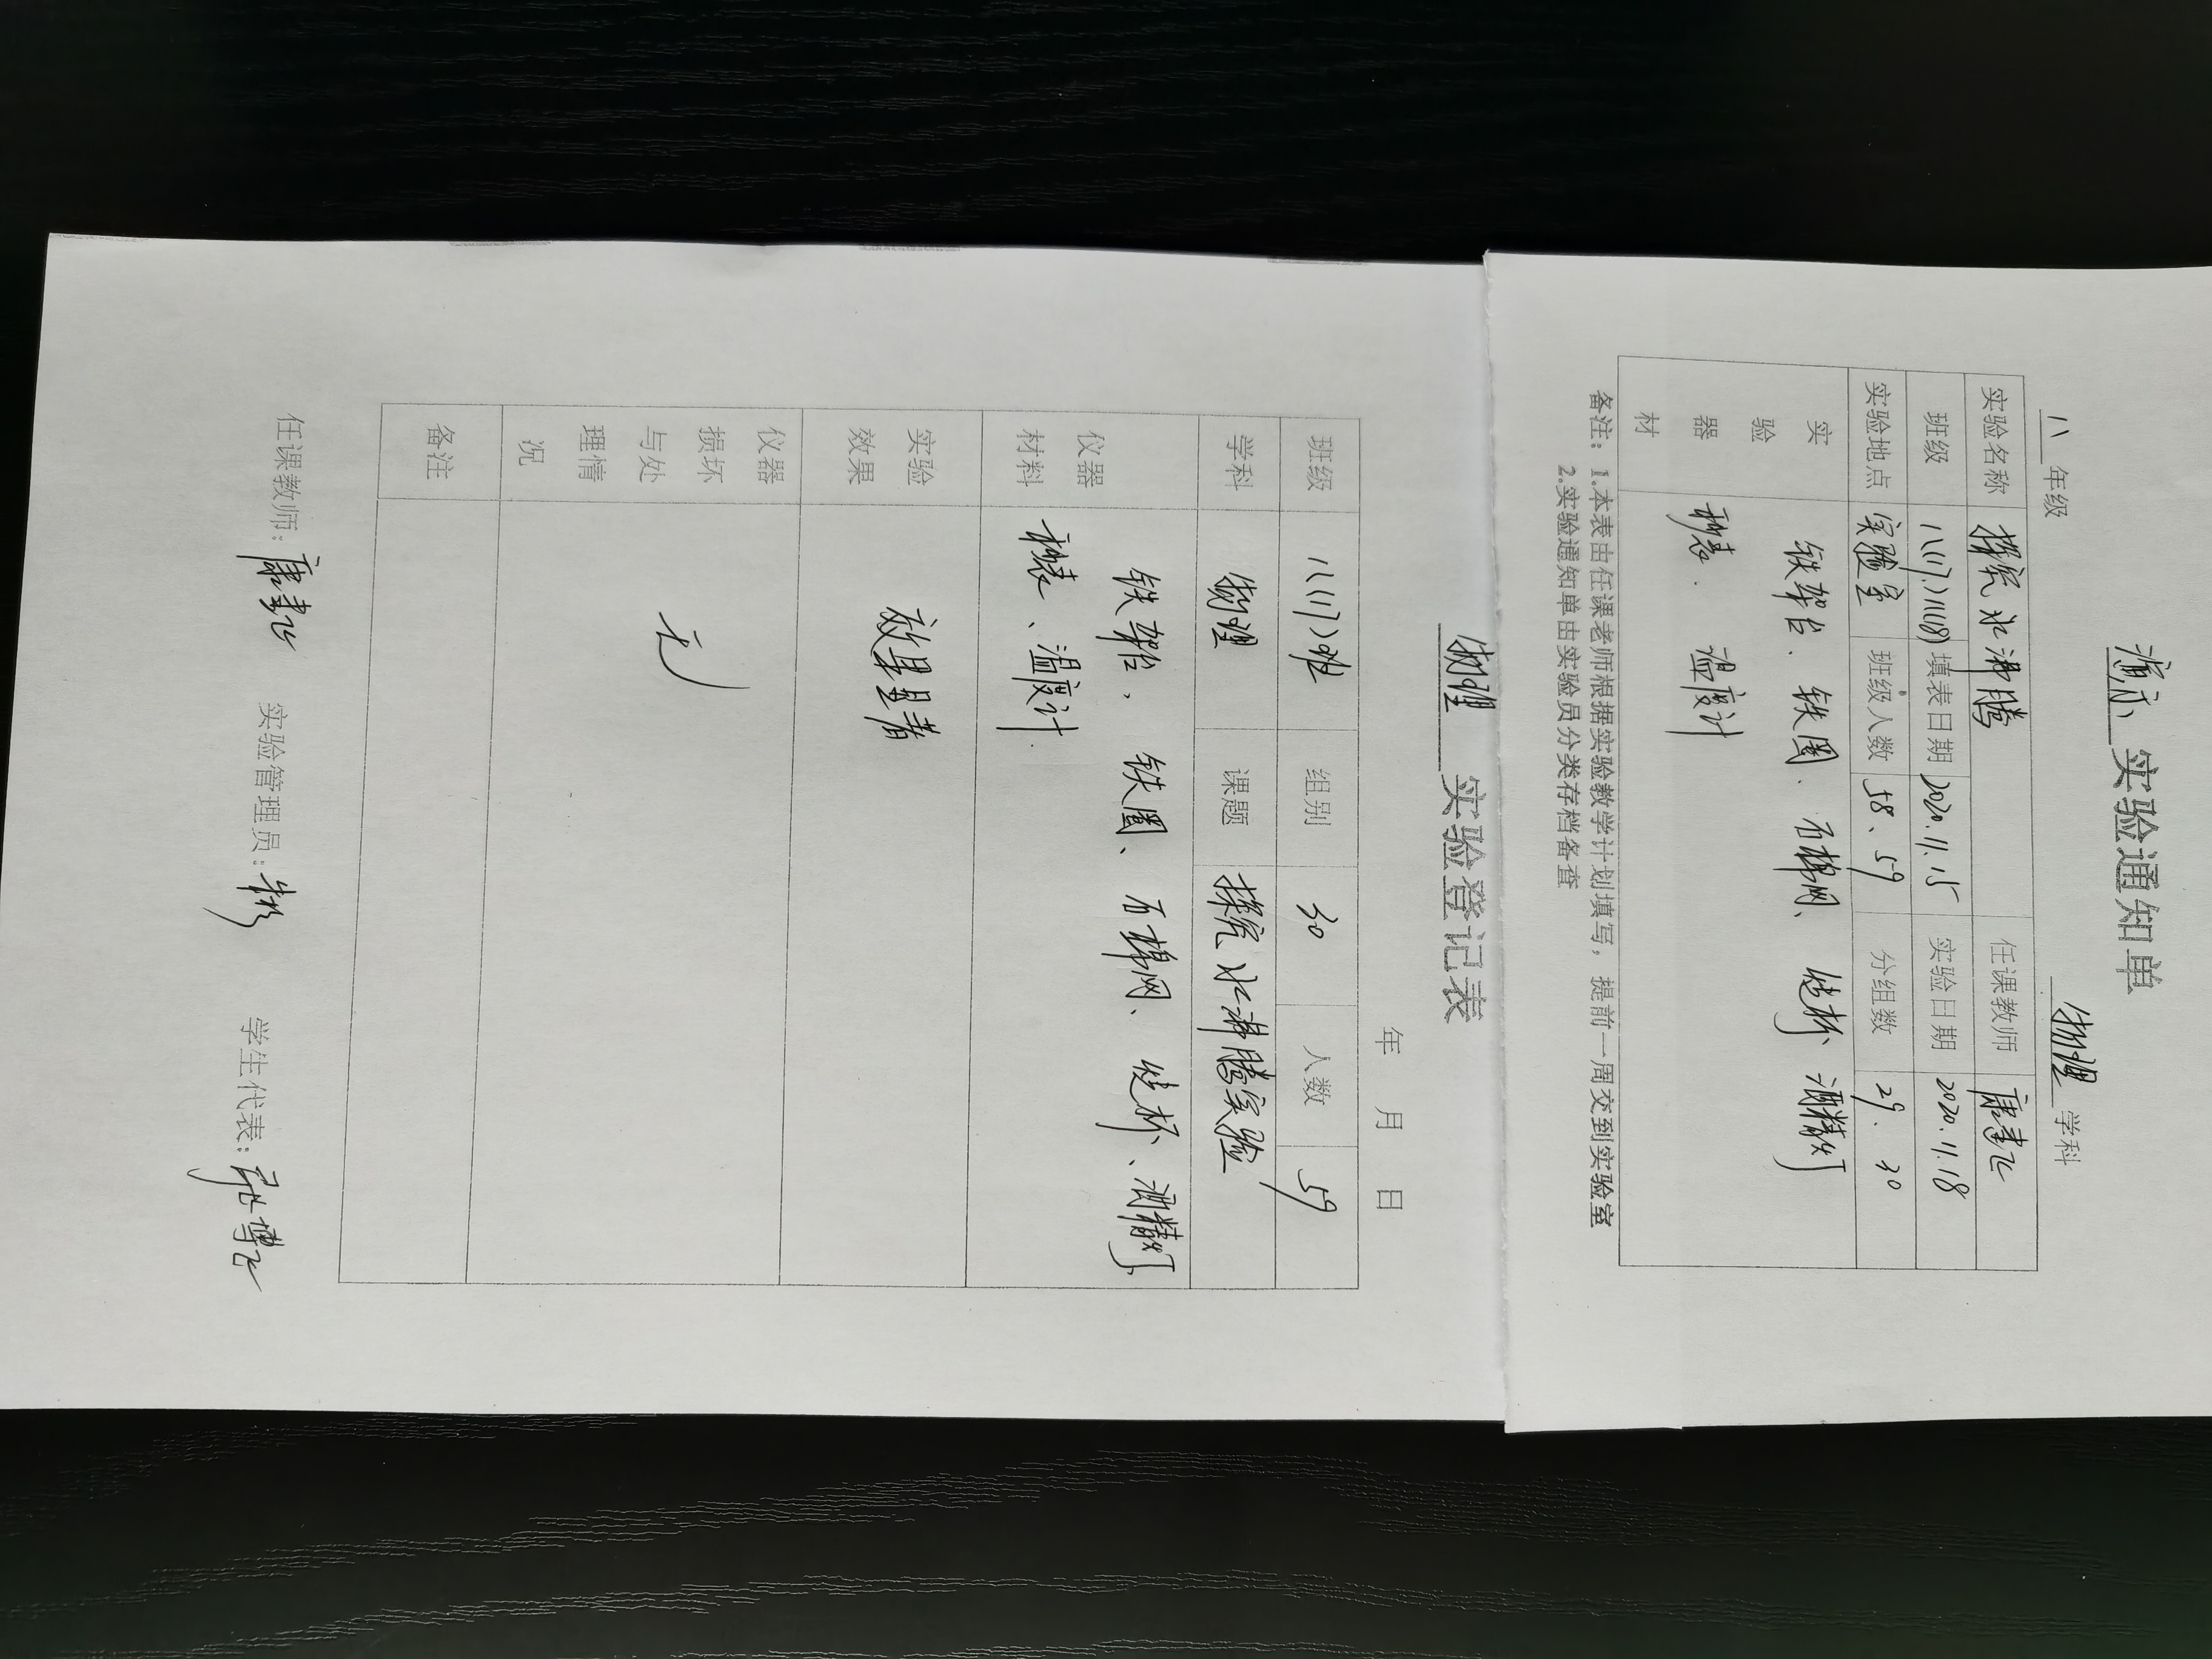 演示 实验通知单
八 年级 物理 学科
实验名称 探究水沸腾 任课教师
班级 八(17)八(18) 填表日期 2020.11.15 实验日期 2020.11.18
实验地点 实验室 班级人数 58、59 分组数 29、30
实验器材 铁架台、铁圈、石棉网、烧杯、酒精灯
秒表、温度计
备注：1.本表由任课老师根据实验教学计划填写，提前一周交到实验室
2.实验通知单由实验员分类存档备查
物理 实验登记表
年 月 日
班级 八(17)班 组别 30 人数 59
学科 物理 课题 探究水沸腾实验
仪器材料 铁架台、铁圈、石棉网、烧杯、酒精灯、
秒表、温度计
实验效果 效果显著
仪器损坏与处理情况 无
备注
任课教师： 实验管理员： 学生代表：